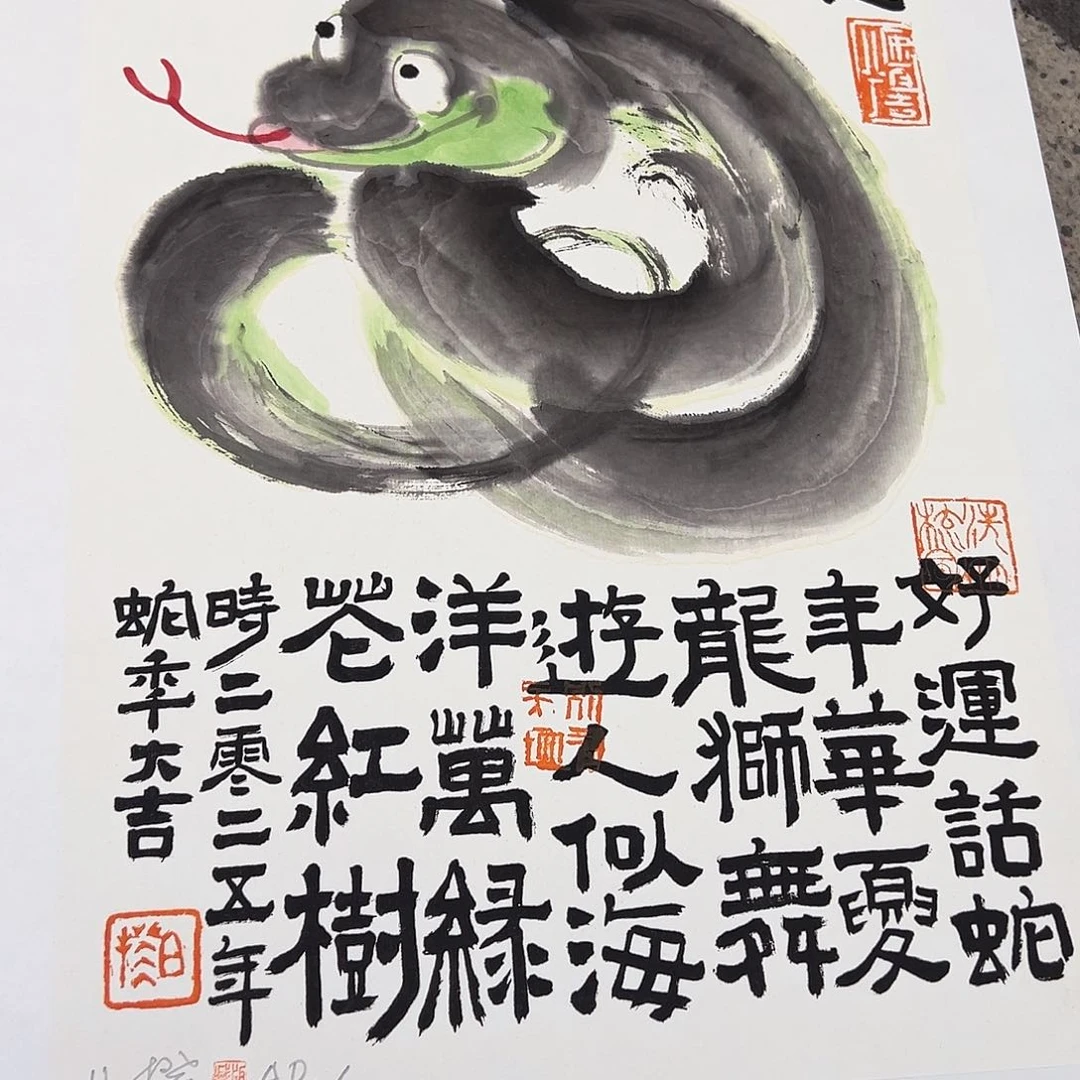 好運話蛇
年華夏
龍獅舞
遊人似海
洋萬緑
花紅樹
時二零二五年
蛇年大吉